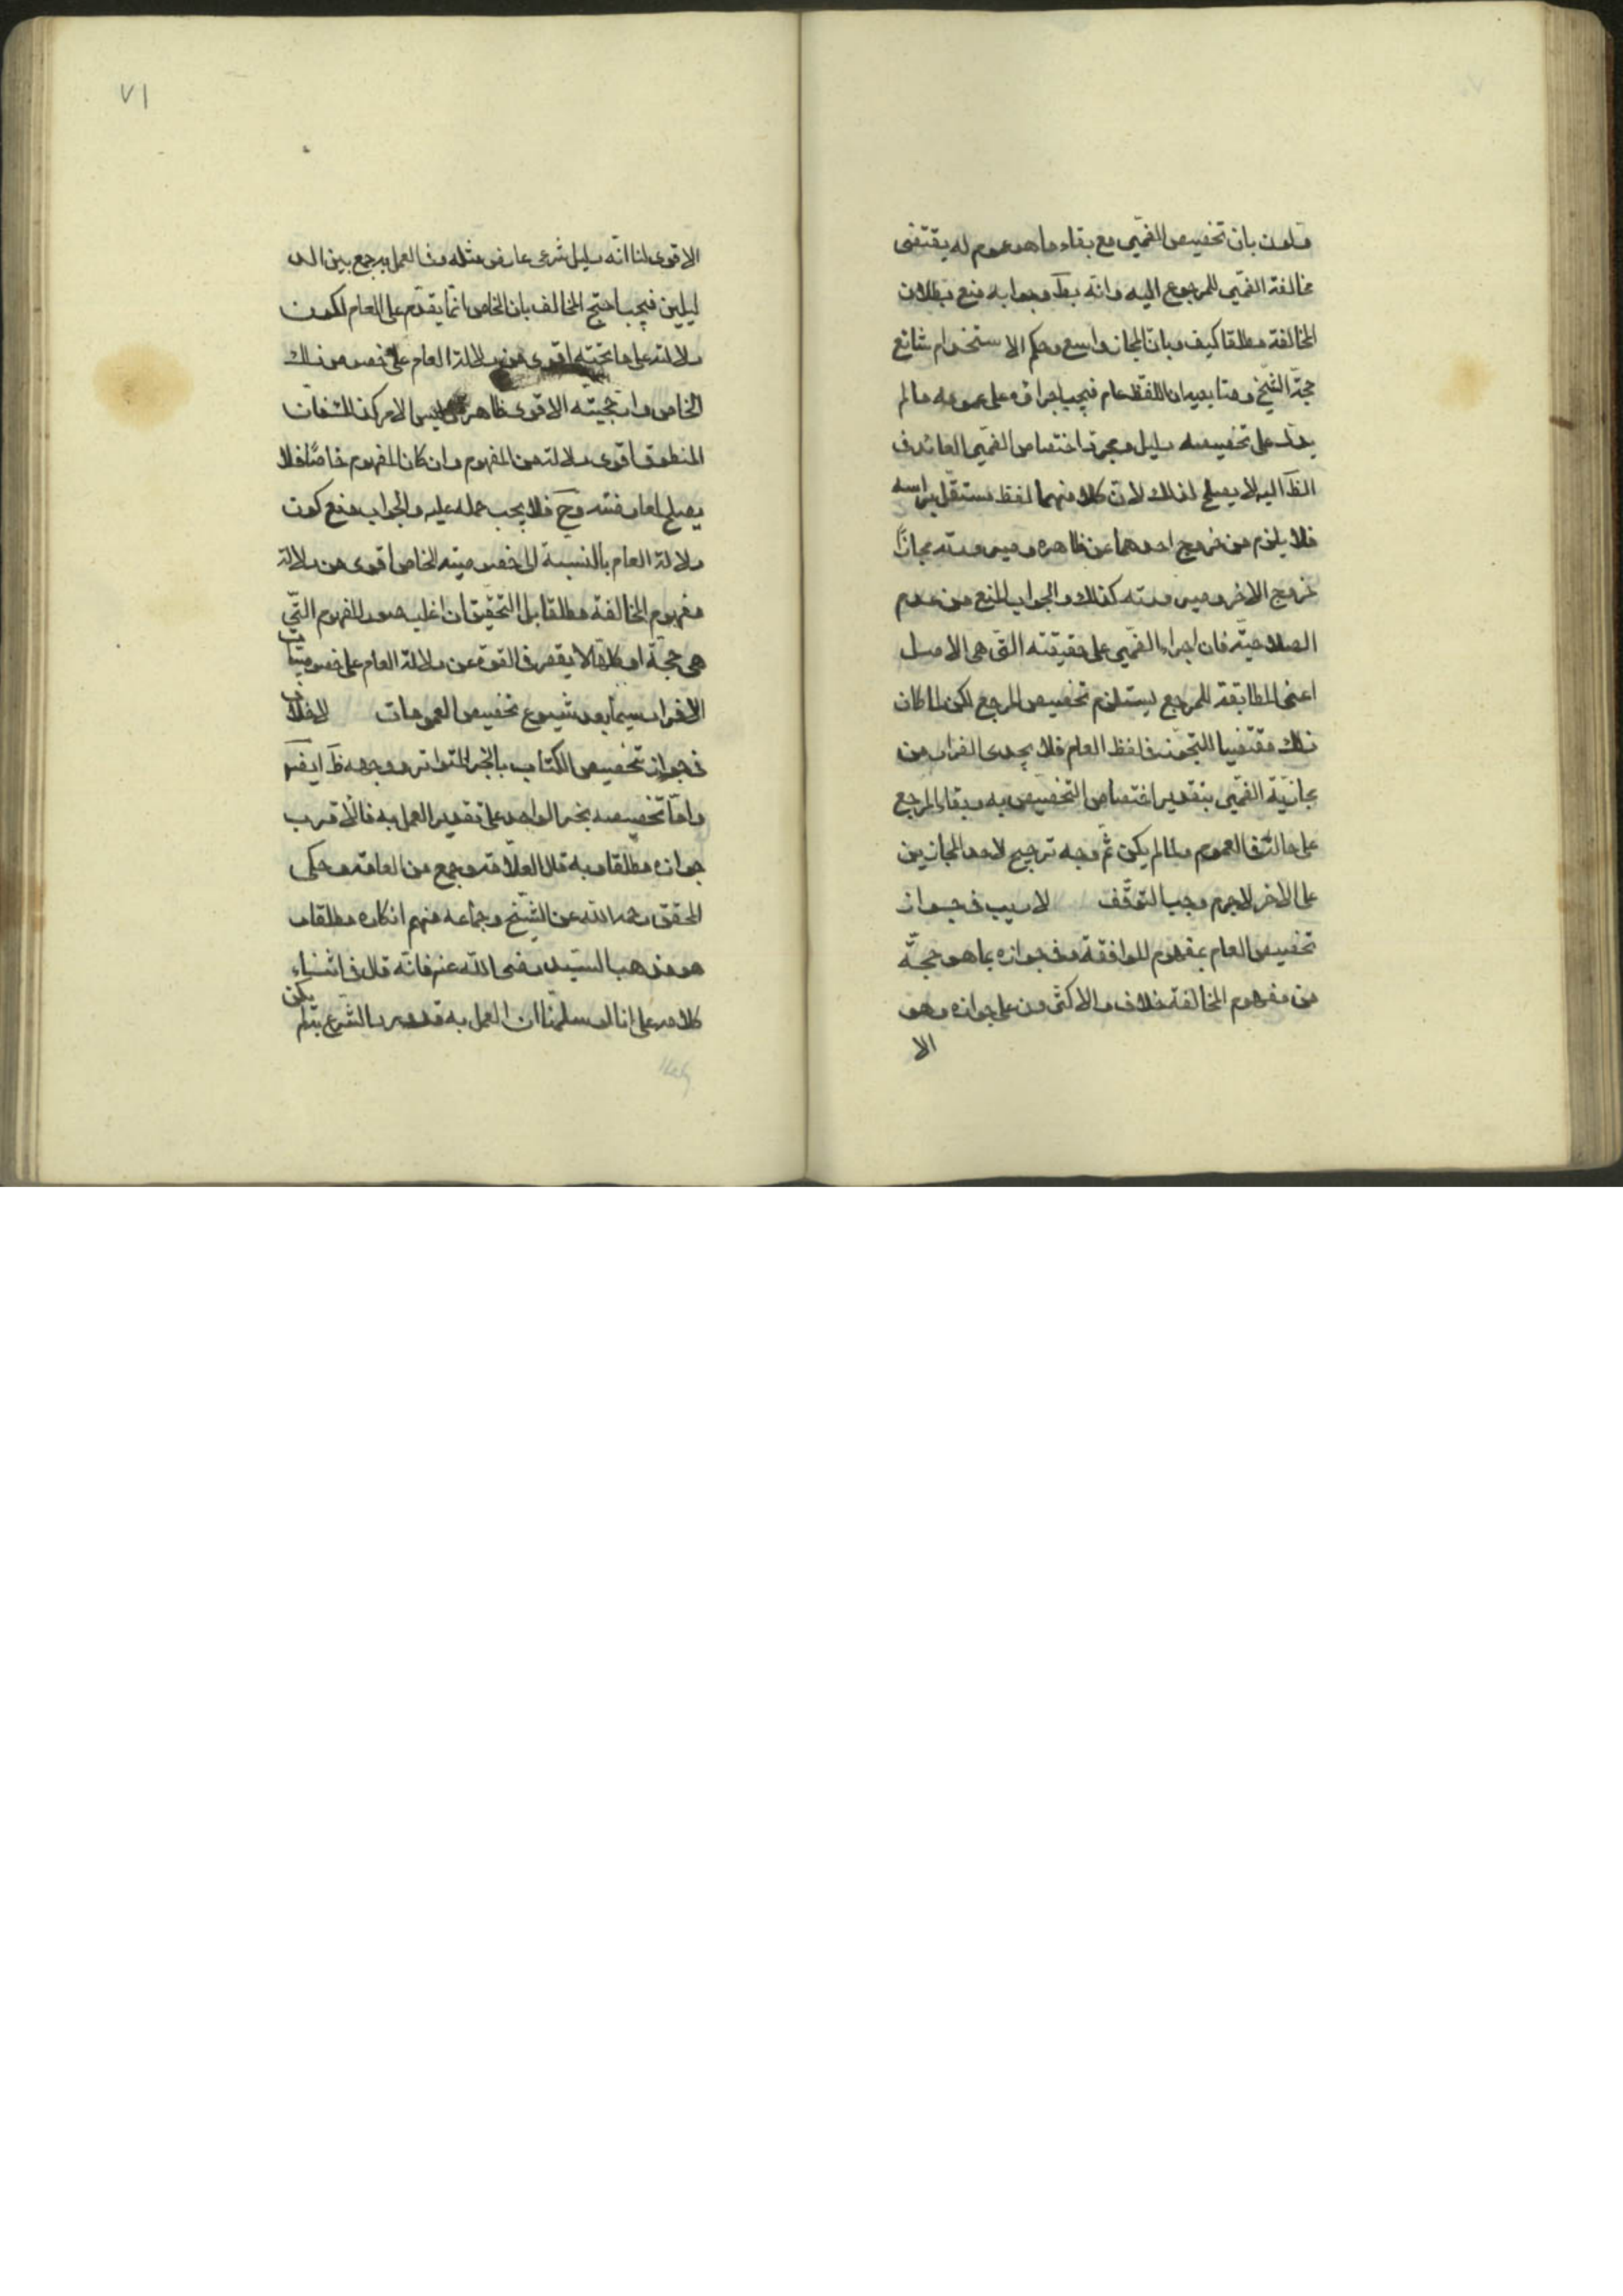 قلون بان تخصيص الضمير مع بقاء ما هو عموم له يقتضى
مخالفة الضمير للمرجوع اليه وانه بط وجوابه منع بطلان
المخالفة مطلقا كيف وباب المجاز واسع وحكم الاستخدام شائع
حجة الشيخ ومتابعيه ان اللفظ عام فيجب اجراؤه على عمومه ما لم
يدل على تخصيصه دليل ومجرد اختصاص الضمير العائد فى
الظ اليه لا يصلح لذلك لان كلا منهما لفظ مستقل براسه
فلا يلزم من خروج احدهما عن ظاهره وصيرورته مجازا
خروج الاخر وصيرورته كذلك والجواب المنع من عدم
الصلاحية فان اجراء الضمير على حقيقته التى هى الاصل
اعنى المطابقة للمرجع يستلزم تخصيص المرجع لكن لما كان
ذلك مقتضيا للتجوز فى لفظ العام فلا يجدى الفرار من
مجازية الضمير بتقدير اختصاص التخصيص به وبقاء المرجع
على حاله فى العموم ولما لم يكن ثم وجه ترجيح لاحد المجازين
على الاخر لا جرم وجب التوقف لا ريب فى جواز
تخصيص العام بمفهوم الموافقة وفى جوازه بما هو حجة
من مفهوم المخالفة خلاف والاكثرون على جوازه وهو
الا
٧١
الاقوى لنا انه دليل شرعى عارض مثله وفى العمل به جمع بين الد
ليلين فيجب احتج المخالف بان الخاص انما يقدم على العام لكون
دلالته على ما تحته اقوى من دلالة العام على خصوص ذلك
الخاص وارجحيته الاقوى ظاهرة وليس الامر كذلك هنا فان
المنطوق اقوى دلالة من المفهوم وان كان المفهوم خاصا فلا
يصلح لمعارضته وح فلا يجب حمله عليه والجواب منع كون
دلالة العام بالنسبة الى خصوصية الخاص اقوى من دلالة
مفهوم المخالفة مطلقا بل التحقيق ان اغلب صور المفهوم التى
هى حجة او كلها لا يقصر فى القوة عن دلالة العام على خصوصيات
الافراد سيما بعد شيوع تخصيص العمومات لا خلاف
فى جواز تخصيص الكتاب بالخبر المتواتر ووجهه ظ ايض
واما تخصيصه بخبر الواحد على تقدير العمل به فالاقرب
جوازه مطلقا وبه قال العلامة وجمع من العامة وحكى
المحقق رحمه الله عن الشيخ وجماعة منهم انكاره مطلقا و
هو مذهب السيد رضى الله عنه فانه قال فى اثناء
كلامه على انا لو سلمنا ان العمل به قد ورد الشرع به لم يكن